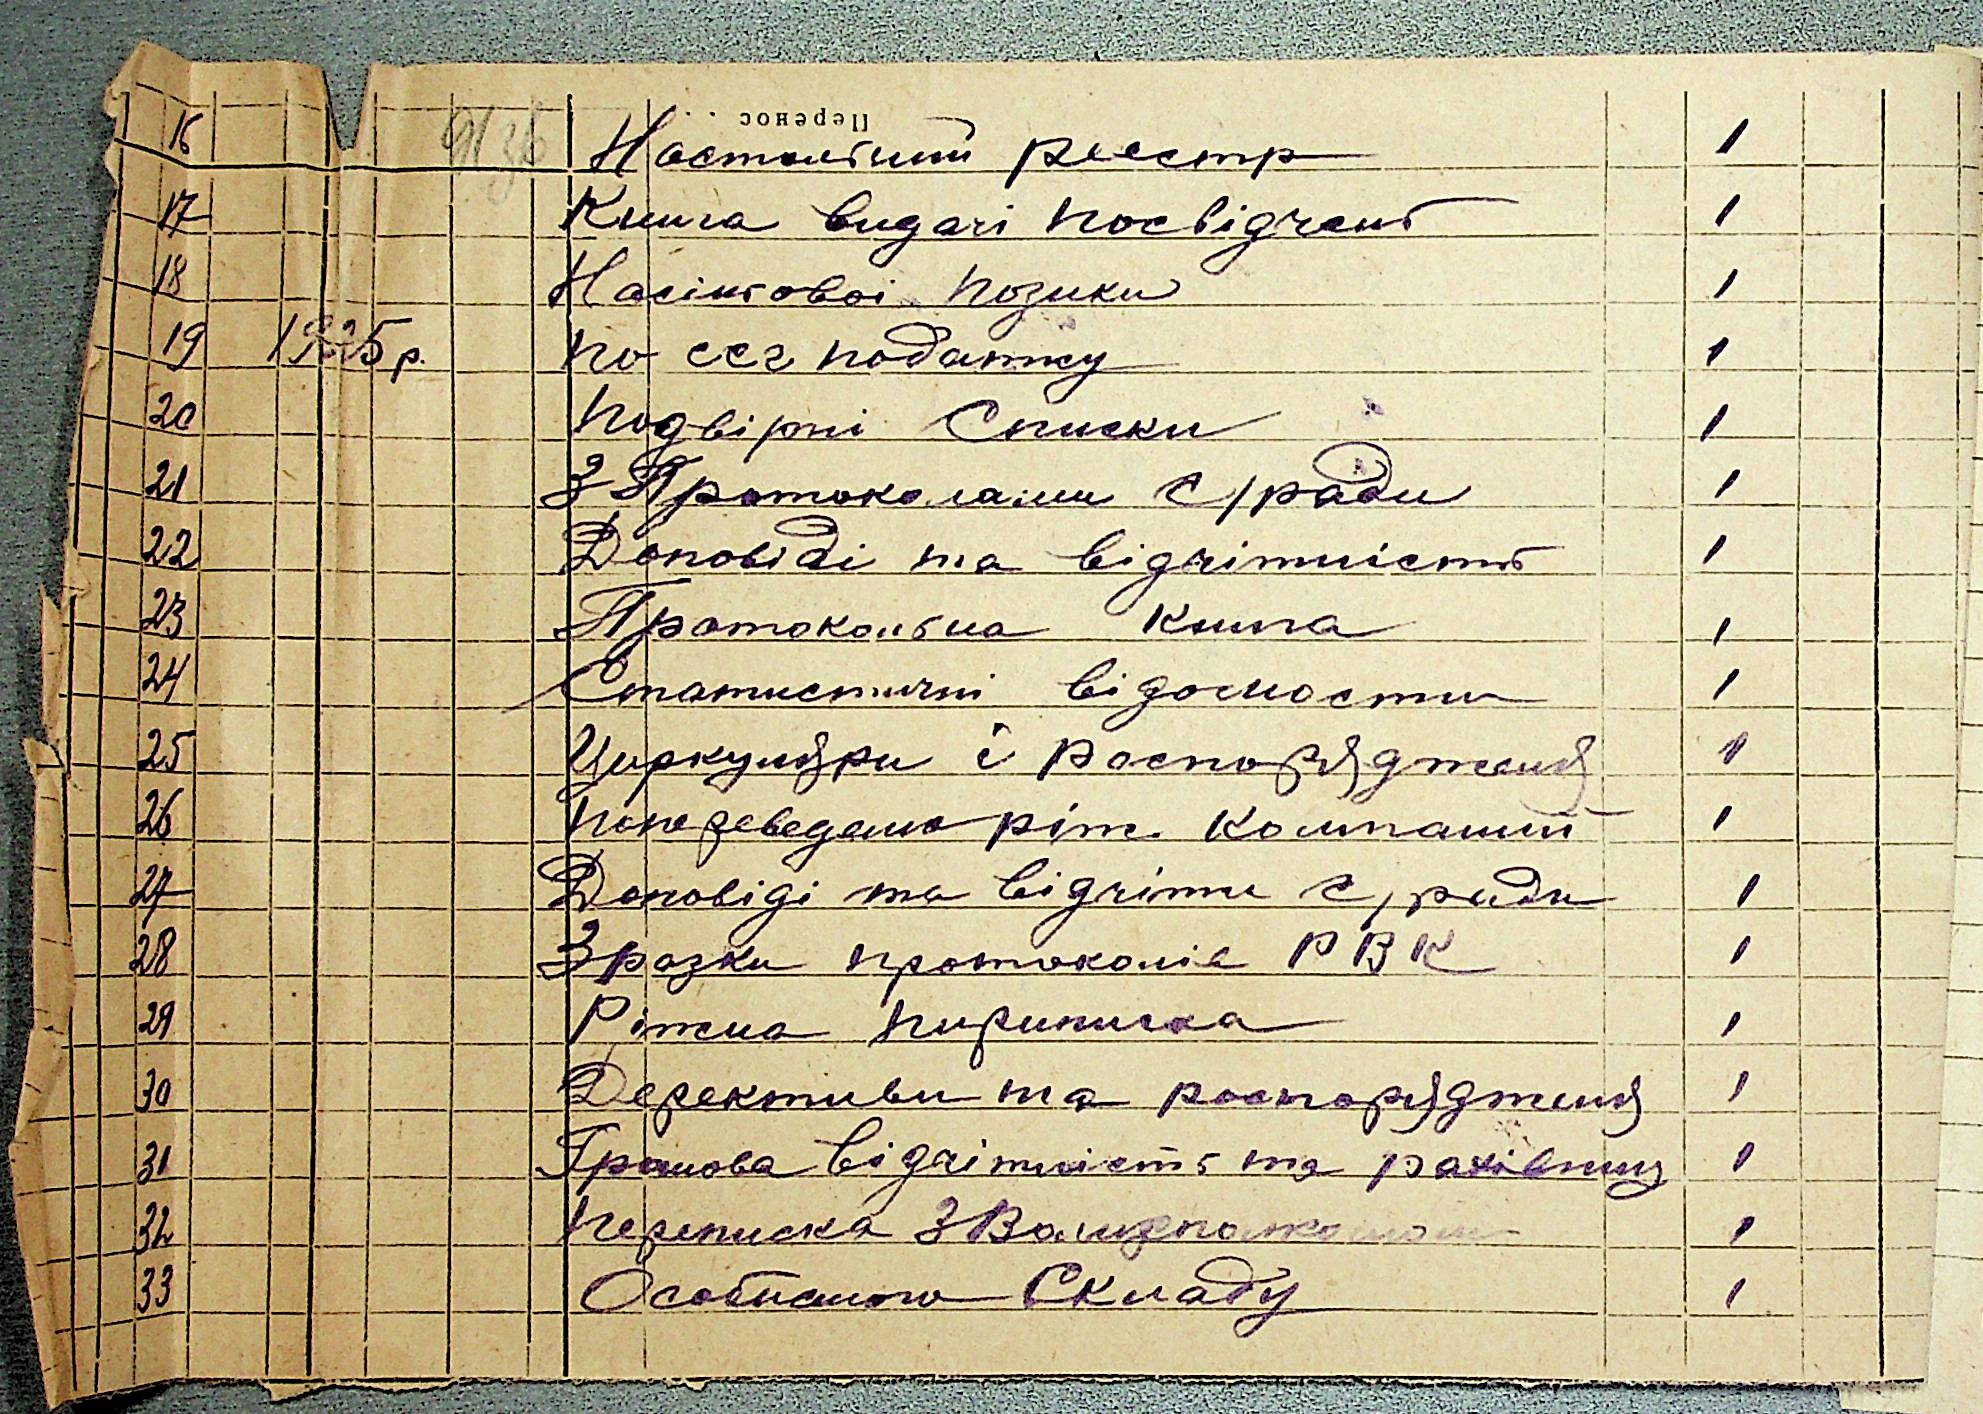 Перенос . .
16 Настольний реестр 1
17 Книга видачі посвідчень 1
18 Насіньової позики 1
19 1925 р. по сег податку 1
20 Подвірні Списки 1
21 З Протоколами с/ради 1
22 Доповіді та відчітність 1
23 Протокольна книга 1
24 Статистичні відомости 1
25 Циркуляри і роспорядженя 1
26 По переведеню ріж. компаний 1
27 Доповіді та відчіти с/ради 1
28 Зразки протоколів РВК 1
29 Ріжна пириписка 1
30 Дерективи та роспорядженя 1
31 Грошова відчітність та рахівниц 1
32 Переписка З 1
33 Особистого Складу 1